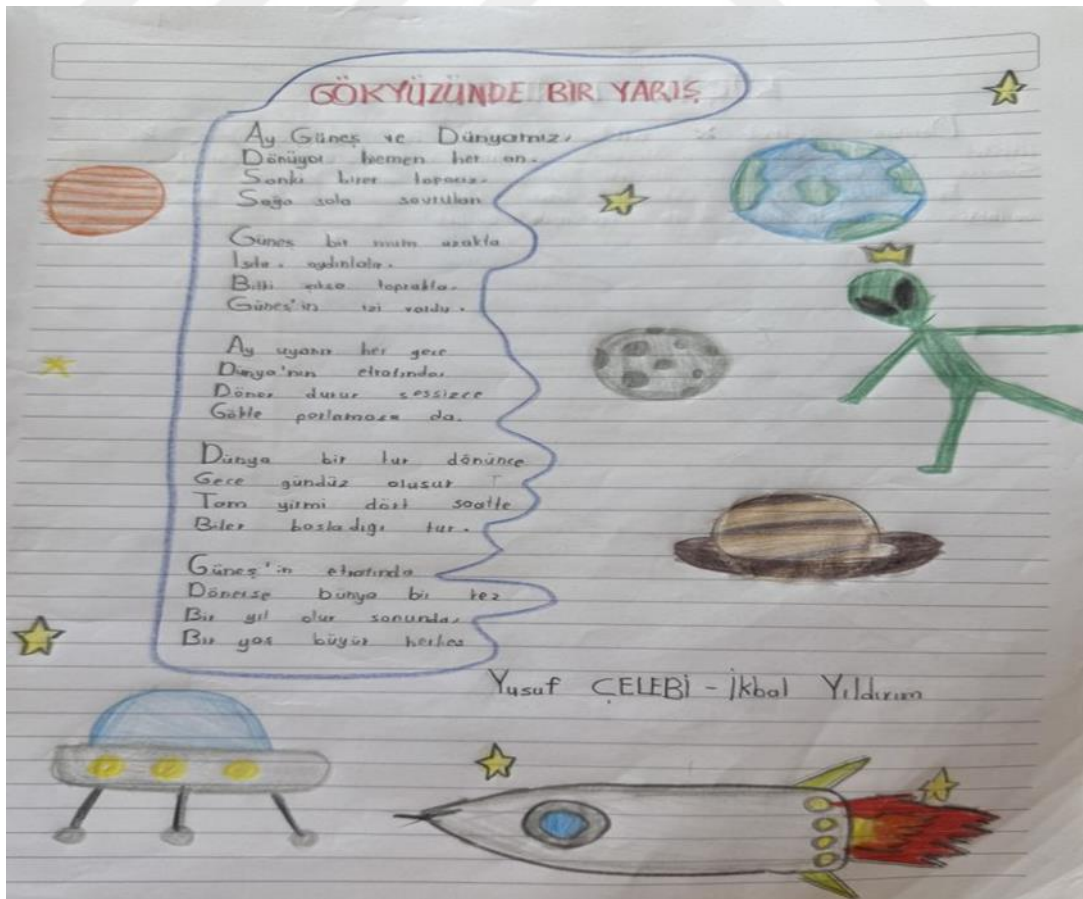 GÖKYÜZÜNDE BIR YARIŞ
Ay Güneş ve Dünyamız,
Dönüyor hemen her an.
Sanki birer topacız.
Sağa sola savrulan
Güneş bir mum uzakta
Isıtır, aydınlatır.
Bitki toprakta.
Güneş'in izi vardır.
Ay uyanır her gece
Dünya'nın etrafında.
Döner durur sessizce
Gökte parlamasa da.
Dünya bir tur dönünce
Gece gündüz oluşur
Tam yirmi dört saatte
Biter başladığı tur.
Güneş'in etrafında
Dönerse Dünya bir kez
Bir yıl olur sonunda.
Bir yaş büyür herkes
Yusuf ÇELEBİ - İkbal Yıldırım